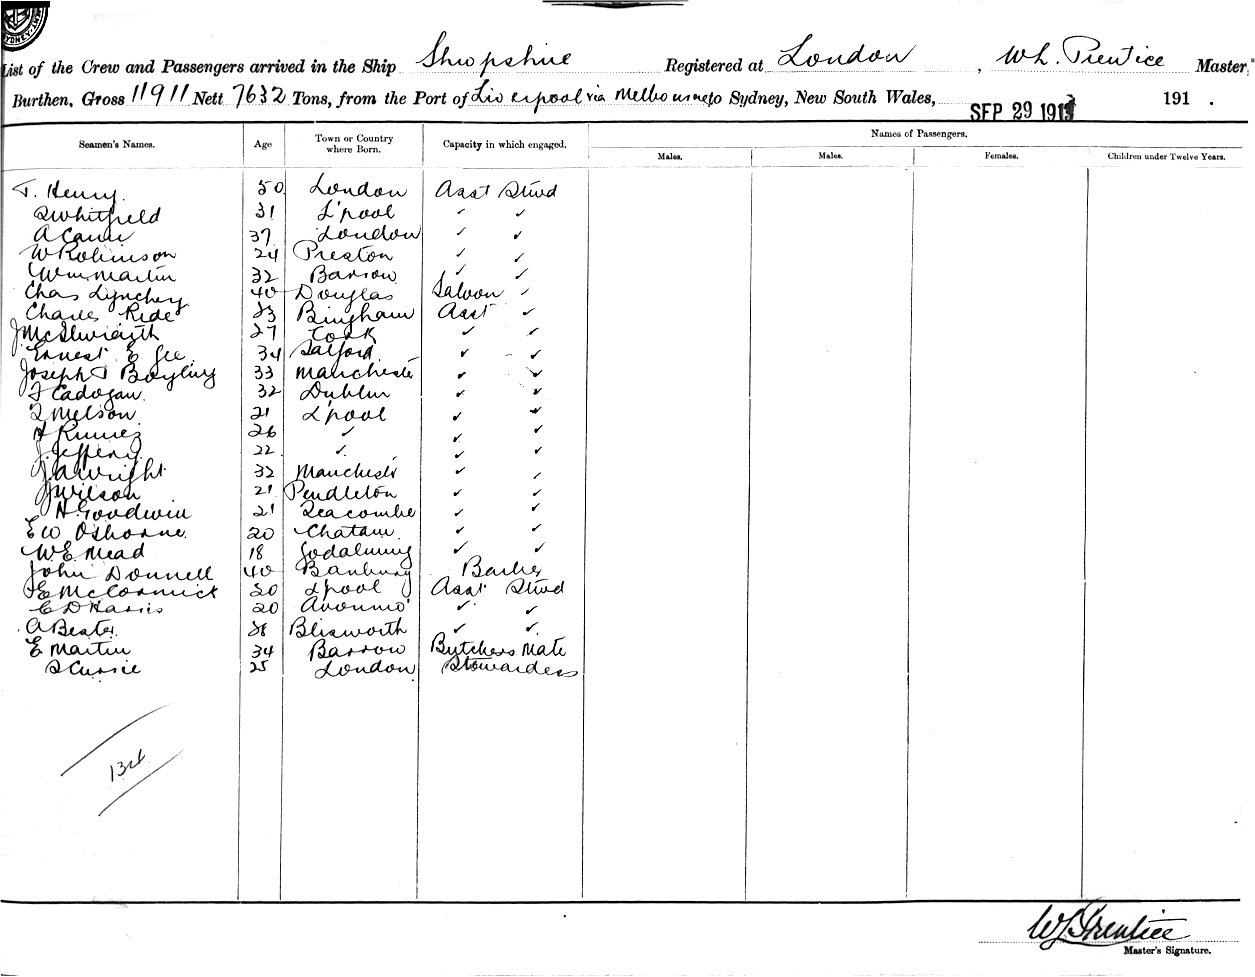 List of the Crew and Passengers arrived in the Ship Shropshire Registered at London , W L. Prentice Master,
Burthen, Gross 11911 Nett 7632 Tons, from the Port of Liverpool via Melbourne to Sydney, New South Wales, SEP 29 191 191 .
Names of Passengers.
Seamen's Names. Age Town or Country where Born. Capacity in which engaged. Males. Males. Females. Children under Twelve Years.
T. Henry 50 London Asst Stwd
Whitfield 31 L'pool ✓ ✓
A 37 London ✓ ✓
W Robinson 24 Preston ✓ ✓
Wm Martin 32 Barrow ✓ ✓
Chas Lynchey 40 Douglas Saloon ✓
Ride 23 Bingham Asst ✓
J McIlwraith 27 Cork ✓ ✓
Ernest E Gee 34 Salford ✓ ✓
Joseph T Bayling 33 Manchester ✓ ✓
F Cadogan 32 Dublin ✓ ✓
Melson 21 L'pool ✓ ✓
26 ✓ ✓ ✓
J. Jeffery 22 ✓ ✓ ✓
J A Wright 32 Manchestr ✓ ✓
J Wilson 21 Pendleton ✓ ✓
H Goodwin 21 Seacombe ✓ ✓
E W Osborne 20 Chatam ✓ ✓
W E Mead 18 Godalming ✓ ✓
John Donnell 40 Banbury Barber
E McCormick 20 L'pool Asst Stwd
E D Harris 20 Avonmo' ✓ ✓
A Bester 28 Blisworth ✓ ✓
E Martin 34 Barrow Butchers Mate
S Currie 25 London Stewardess
13th
W L Prentice
Master's Signature.